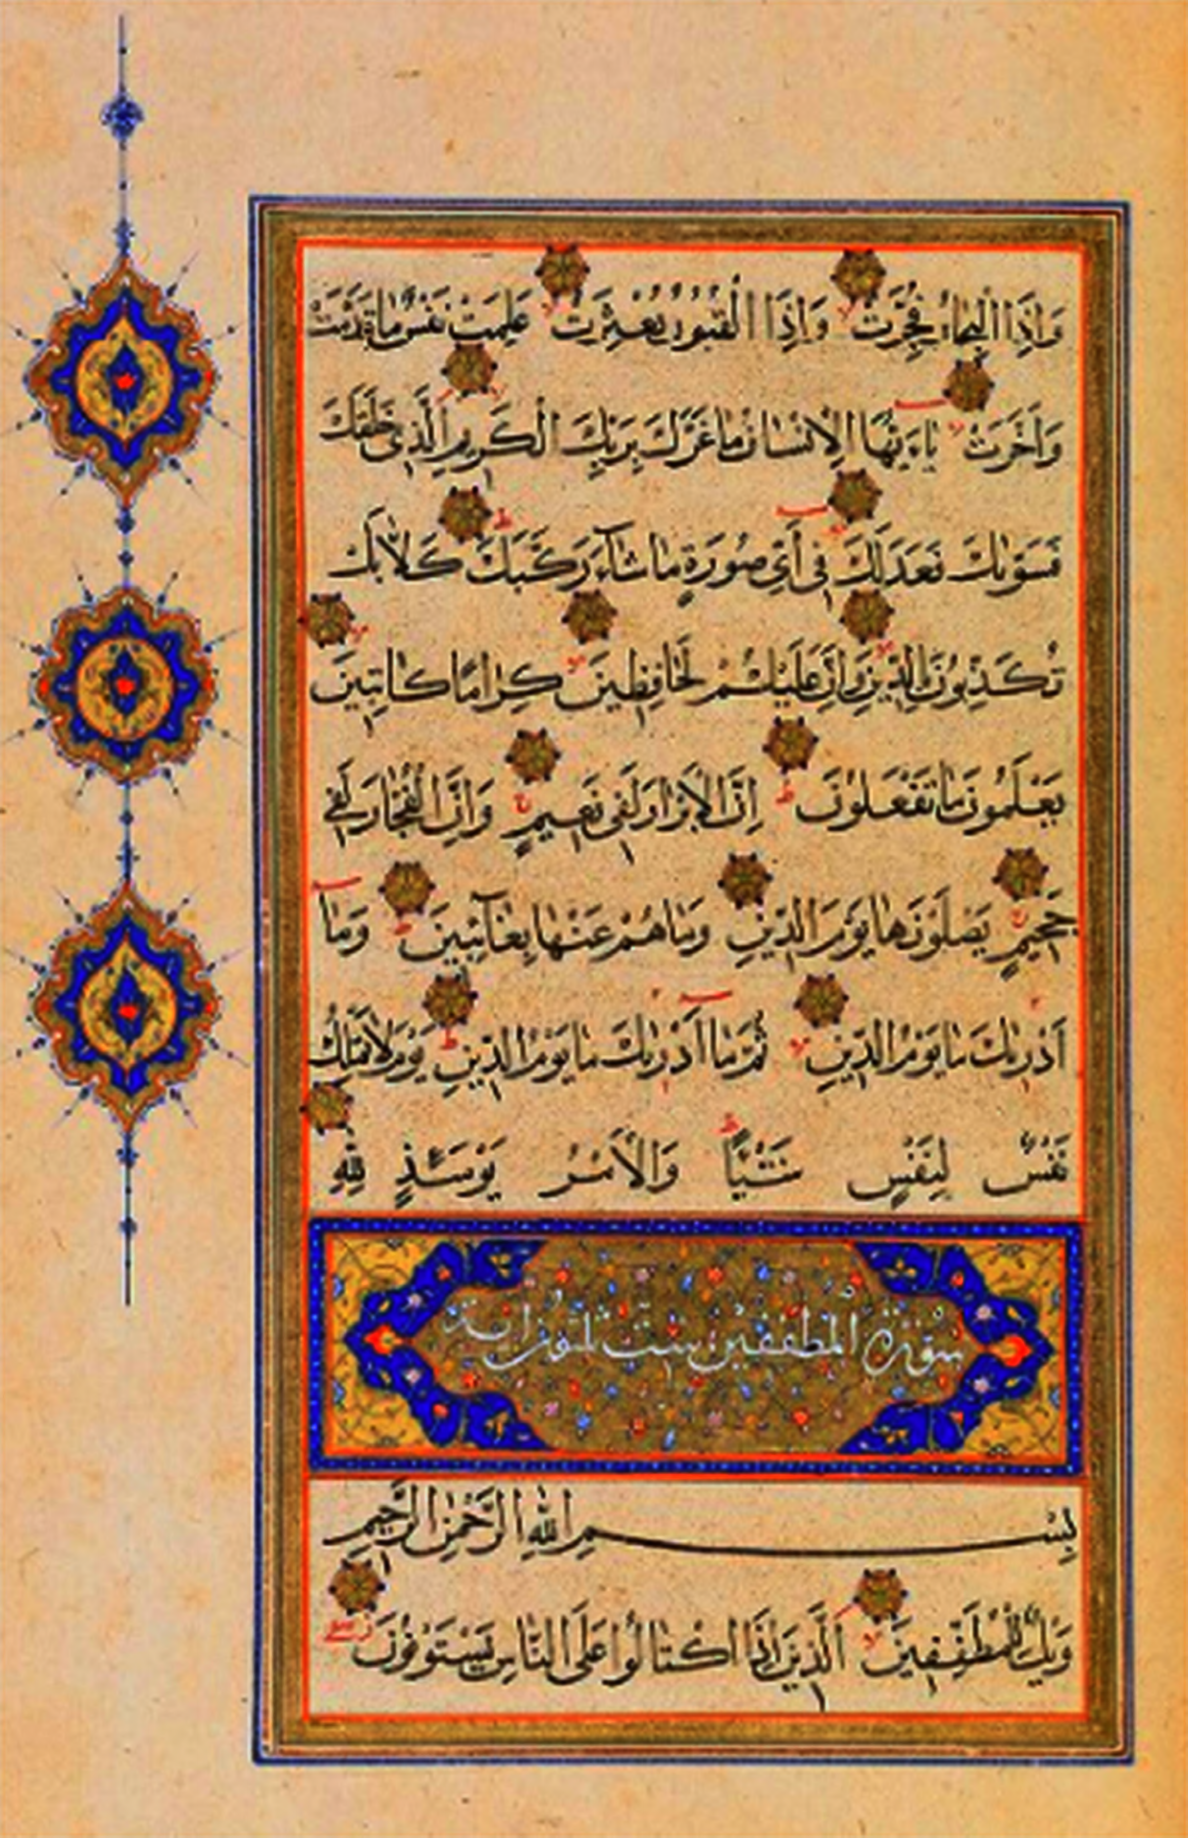 وَاِذَا الْبِحَارُ فُجِّرَتْ وَاِذَا الْقُبُورُ بُعْثِرَتْ عَلِمَتْ نَفْسٌ مَا قَدَّمَتْ
وَاَخَّرَتْ يَاءَيُّهَا الْاِنْسَانُ مَا غَرَّكَ بِرَبِّكَ الْكَرِيمِ الَّذِى خَلَقَكَ
فَسَوّٰيكَ فَعَدَلَكَ فِى اَىِّ صُورَةٍ مَا شَآءَ رَكَّبَكَ كَلَّا بَلْ
تُكَذِّبُونَ بِالدِّينِ وَاِنَّ عَلَيْكُمْ لَحَافِظِينَ كِرَامًا كَاتِبِينَ
يَعْلَمُونَ مَا تَفْعَلُونَ اِنَّ الْاَبْرَارَ لَفِى نَعِيمٍ وَاِنَّ الْفُجَّارَ لَفِى
جَحِيمٍ يَصْلَوْنَهَا يَوْمَ الدِّينِ وَمَا هُمْ عَنْهَا بِغَآئِبِينَ وَمَا
اَدْرٰيكَ مَا يَوْمُ الدِّينِ ثُمَّ مَا اَدْرٰيكَ مَا يَوْمُ الدِّينِ يَوْمَ لَا تَمْلِكُ
نَفْسٌ لِنَفْسٍ شَيْئًا وَالْاَمْرُ يَوْمَئِذٍ لِلّٰهِ
سورة المطففين ست ثلثون اية
بِسْمِ اللّٰهِ الرَّحْمٰنِ الرَّحِيمِ
وَيْلٌ لِلْمُطَفِّفِينَ اَلَّذِينَ اِذَا اكْتَالُوا عَلَى النَّاسِ يَسْتَوْفُونَ